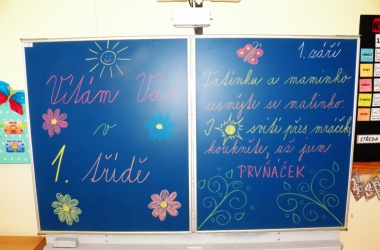 Vítám Vás
v
1. třídě
1. září
Tatínku a maminko
usmějte se malinko.
I svítí přes mráček
koukněte, už jsem
PRVŇÁČEK
STŘEDA